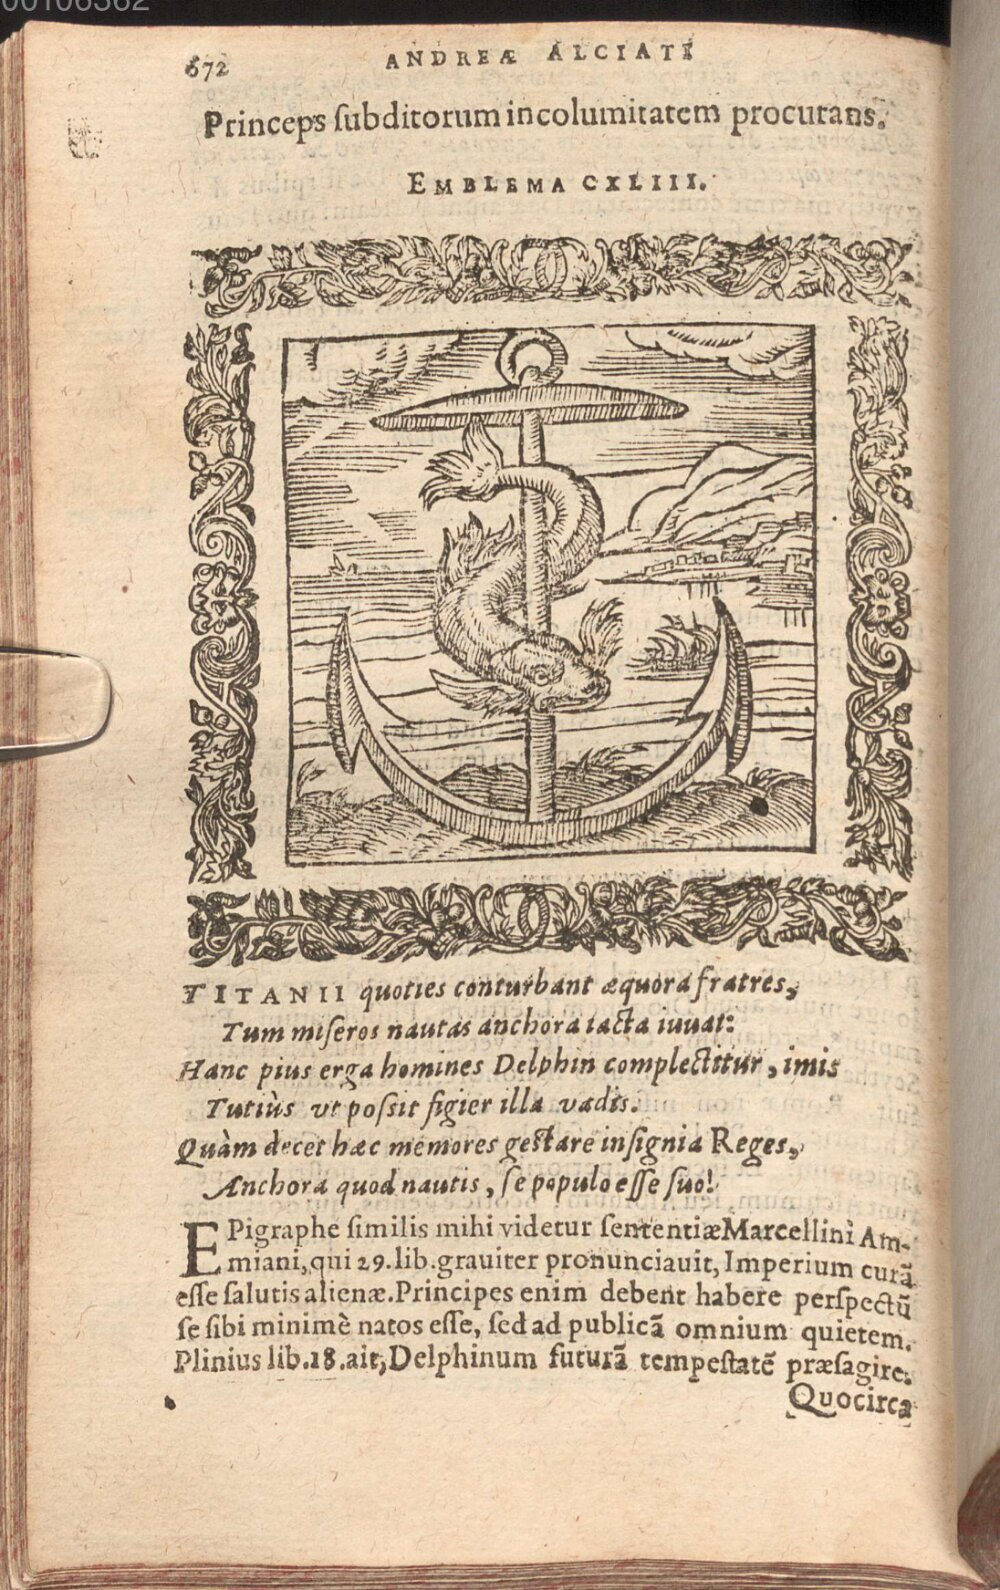 00106362
672
ANDREÆ ALCIATI
Princeps ſubditorum incolumitatem procurans.
EMBLEMA CXLIII.
TITANII quoties conturbant æquora fratres,
Tum miſeros nautas anchora iacta iuuat:
Hanc pius erga homines Delphin complectitur, imis
Tutiùs vt poſsit figier illa vadis.
Quàm decet hæc memores geſtare inſignia Reges,
Anchora quod nautis, ſe populo eſſe ſuo!
EPigraphe ſimilis mihi videtur ſententiæ Marcellini Am-
miani, qui 29. lib. grauiter pronunciauit, Imperium curã
eſſe ſalutis alienæ. Principes enim debent habere perſpectũ
ſe ſibi minimè natos eſſe, ſed ad publicã omnium quietem.
Plinius lib. 18. ait, Delphinum futurã tempeſtatẽ præſagire.
Quocirca